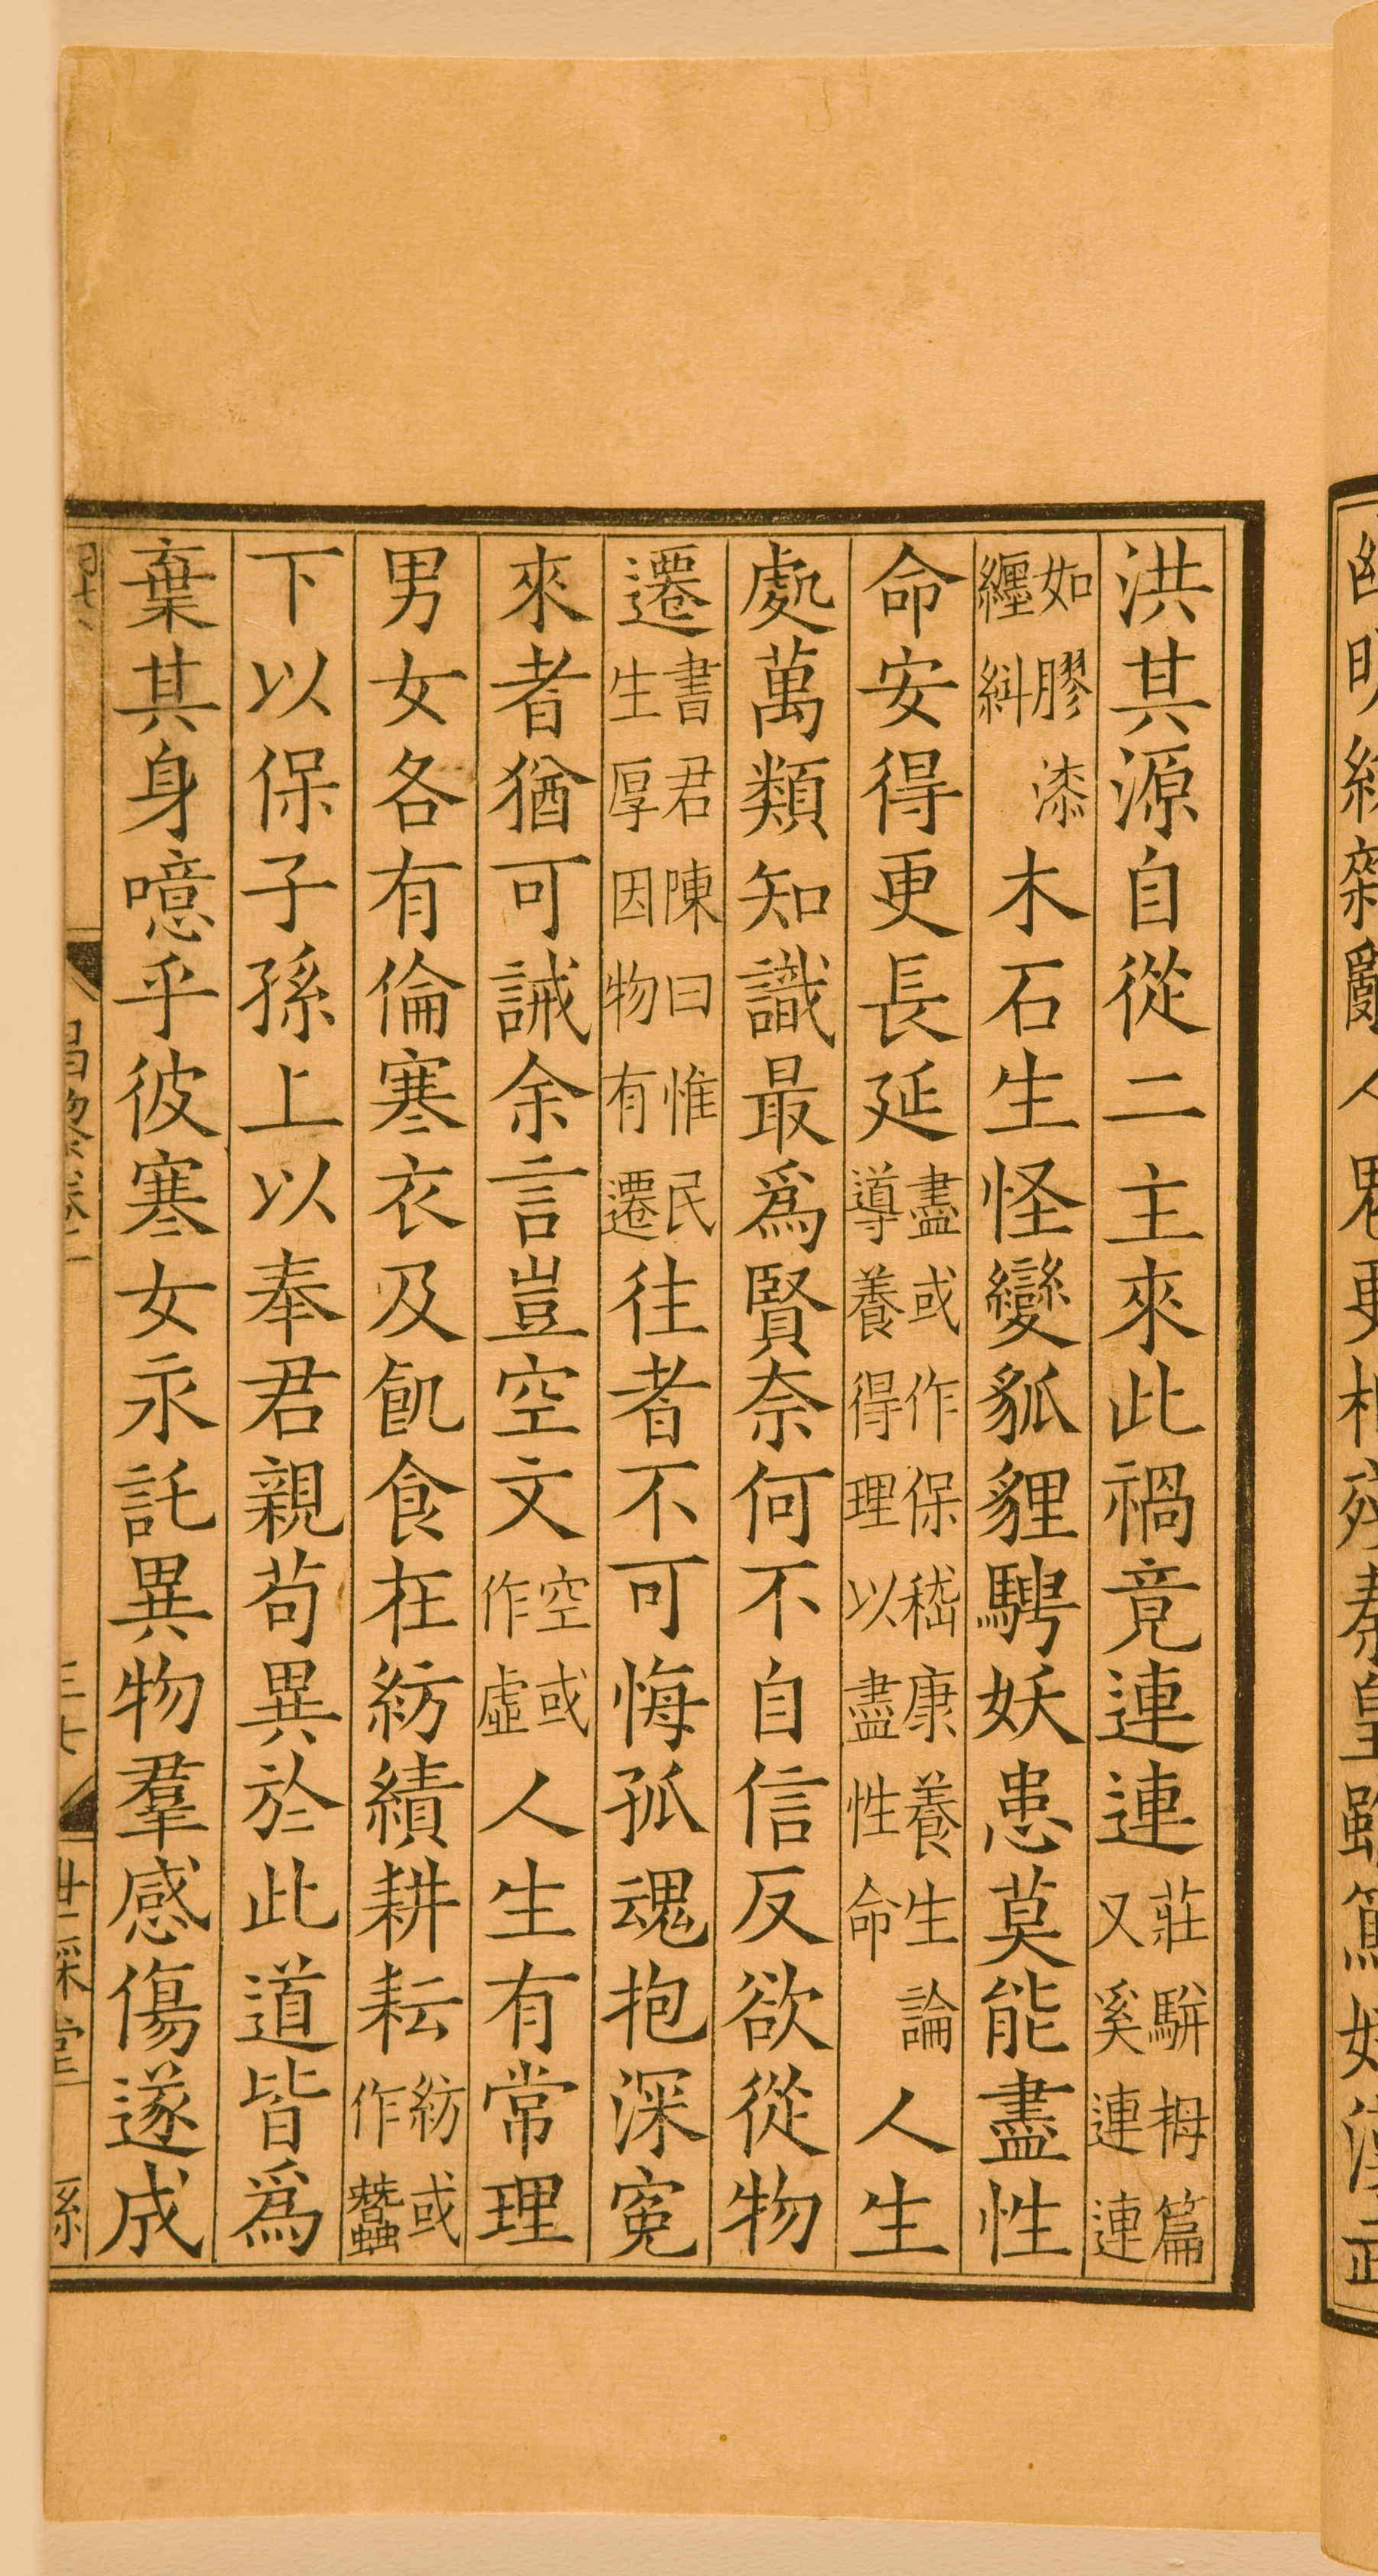 洪其源自從二主來此禍竟連連莊駢拇篇又奚連連
如膠漆纏糾木石生怪變狐貍騁妖患莫能盡性
命安得更長延盡或作保嵇康養生論導養得理以盡性命人生
處萬類知識最爲賢奈何不自信反欲從物
遷書君陳曰惟民生厚因物有遷往者不可悔孤魂抱深寃
來者猶可誡余言豈空文空或作虛人生有常理
男女各有倫寒衣及飢食在紡績耕耘紡或作蠶
下以保子孫上以奉君親苟異於此道皆爲
棄其身噫乎彼寒女永託異物羣感傷遂成